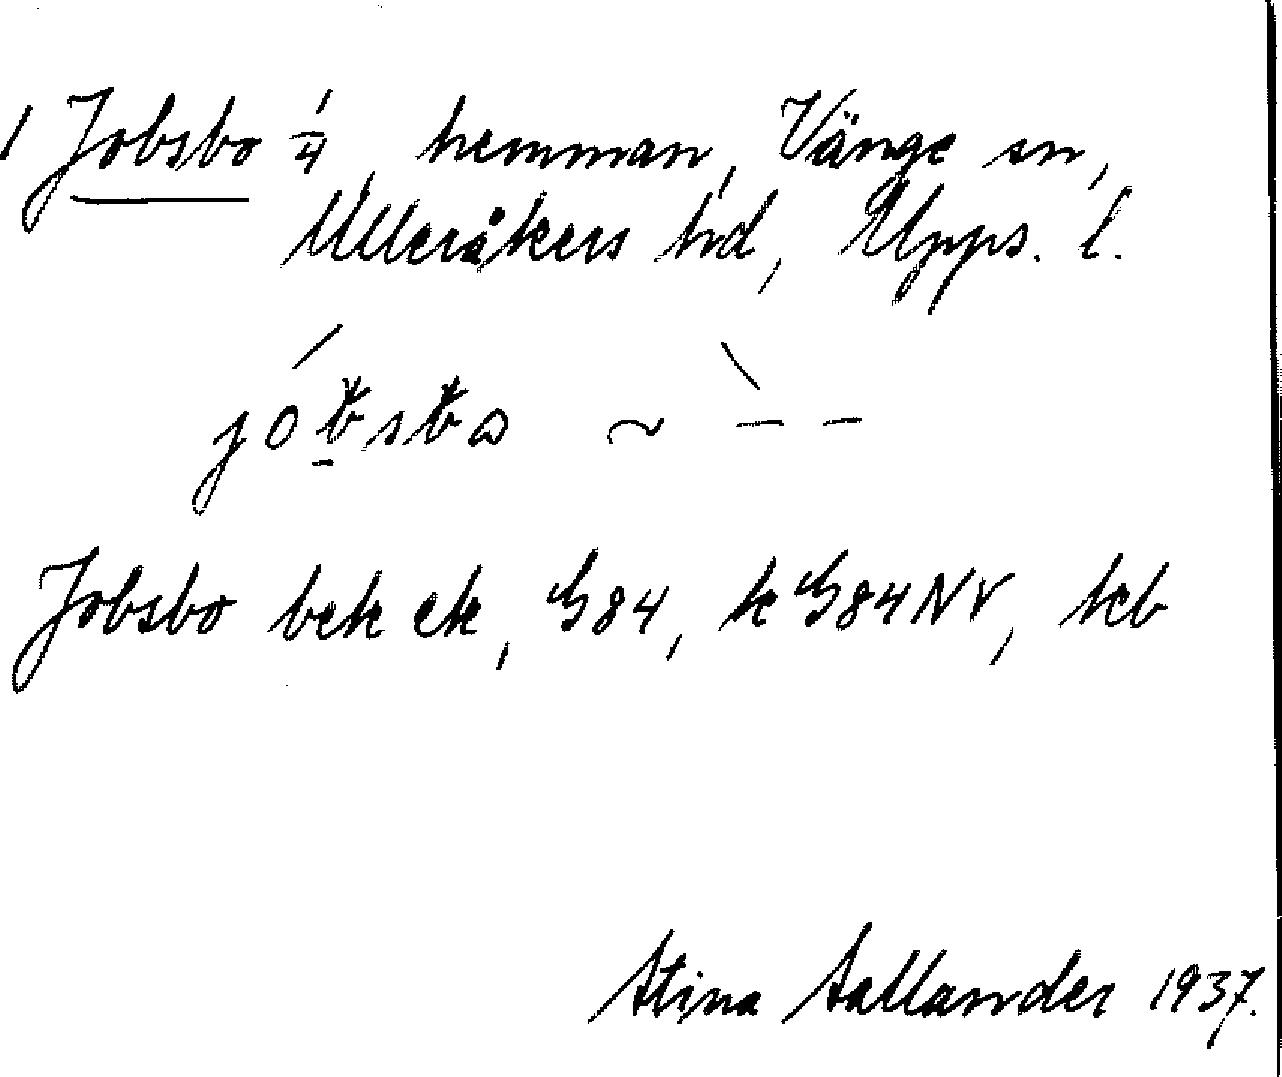 1 Jobsbo 1/4, hemman, Vänge sn,
Ulleråkers hd, Upps. l.
Jobsbo bek ek, G84, k G84NV, kb
Stina Sallander 1937.